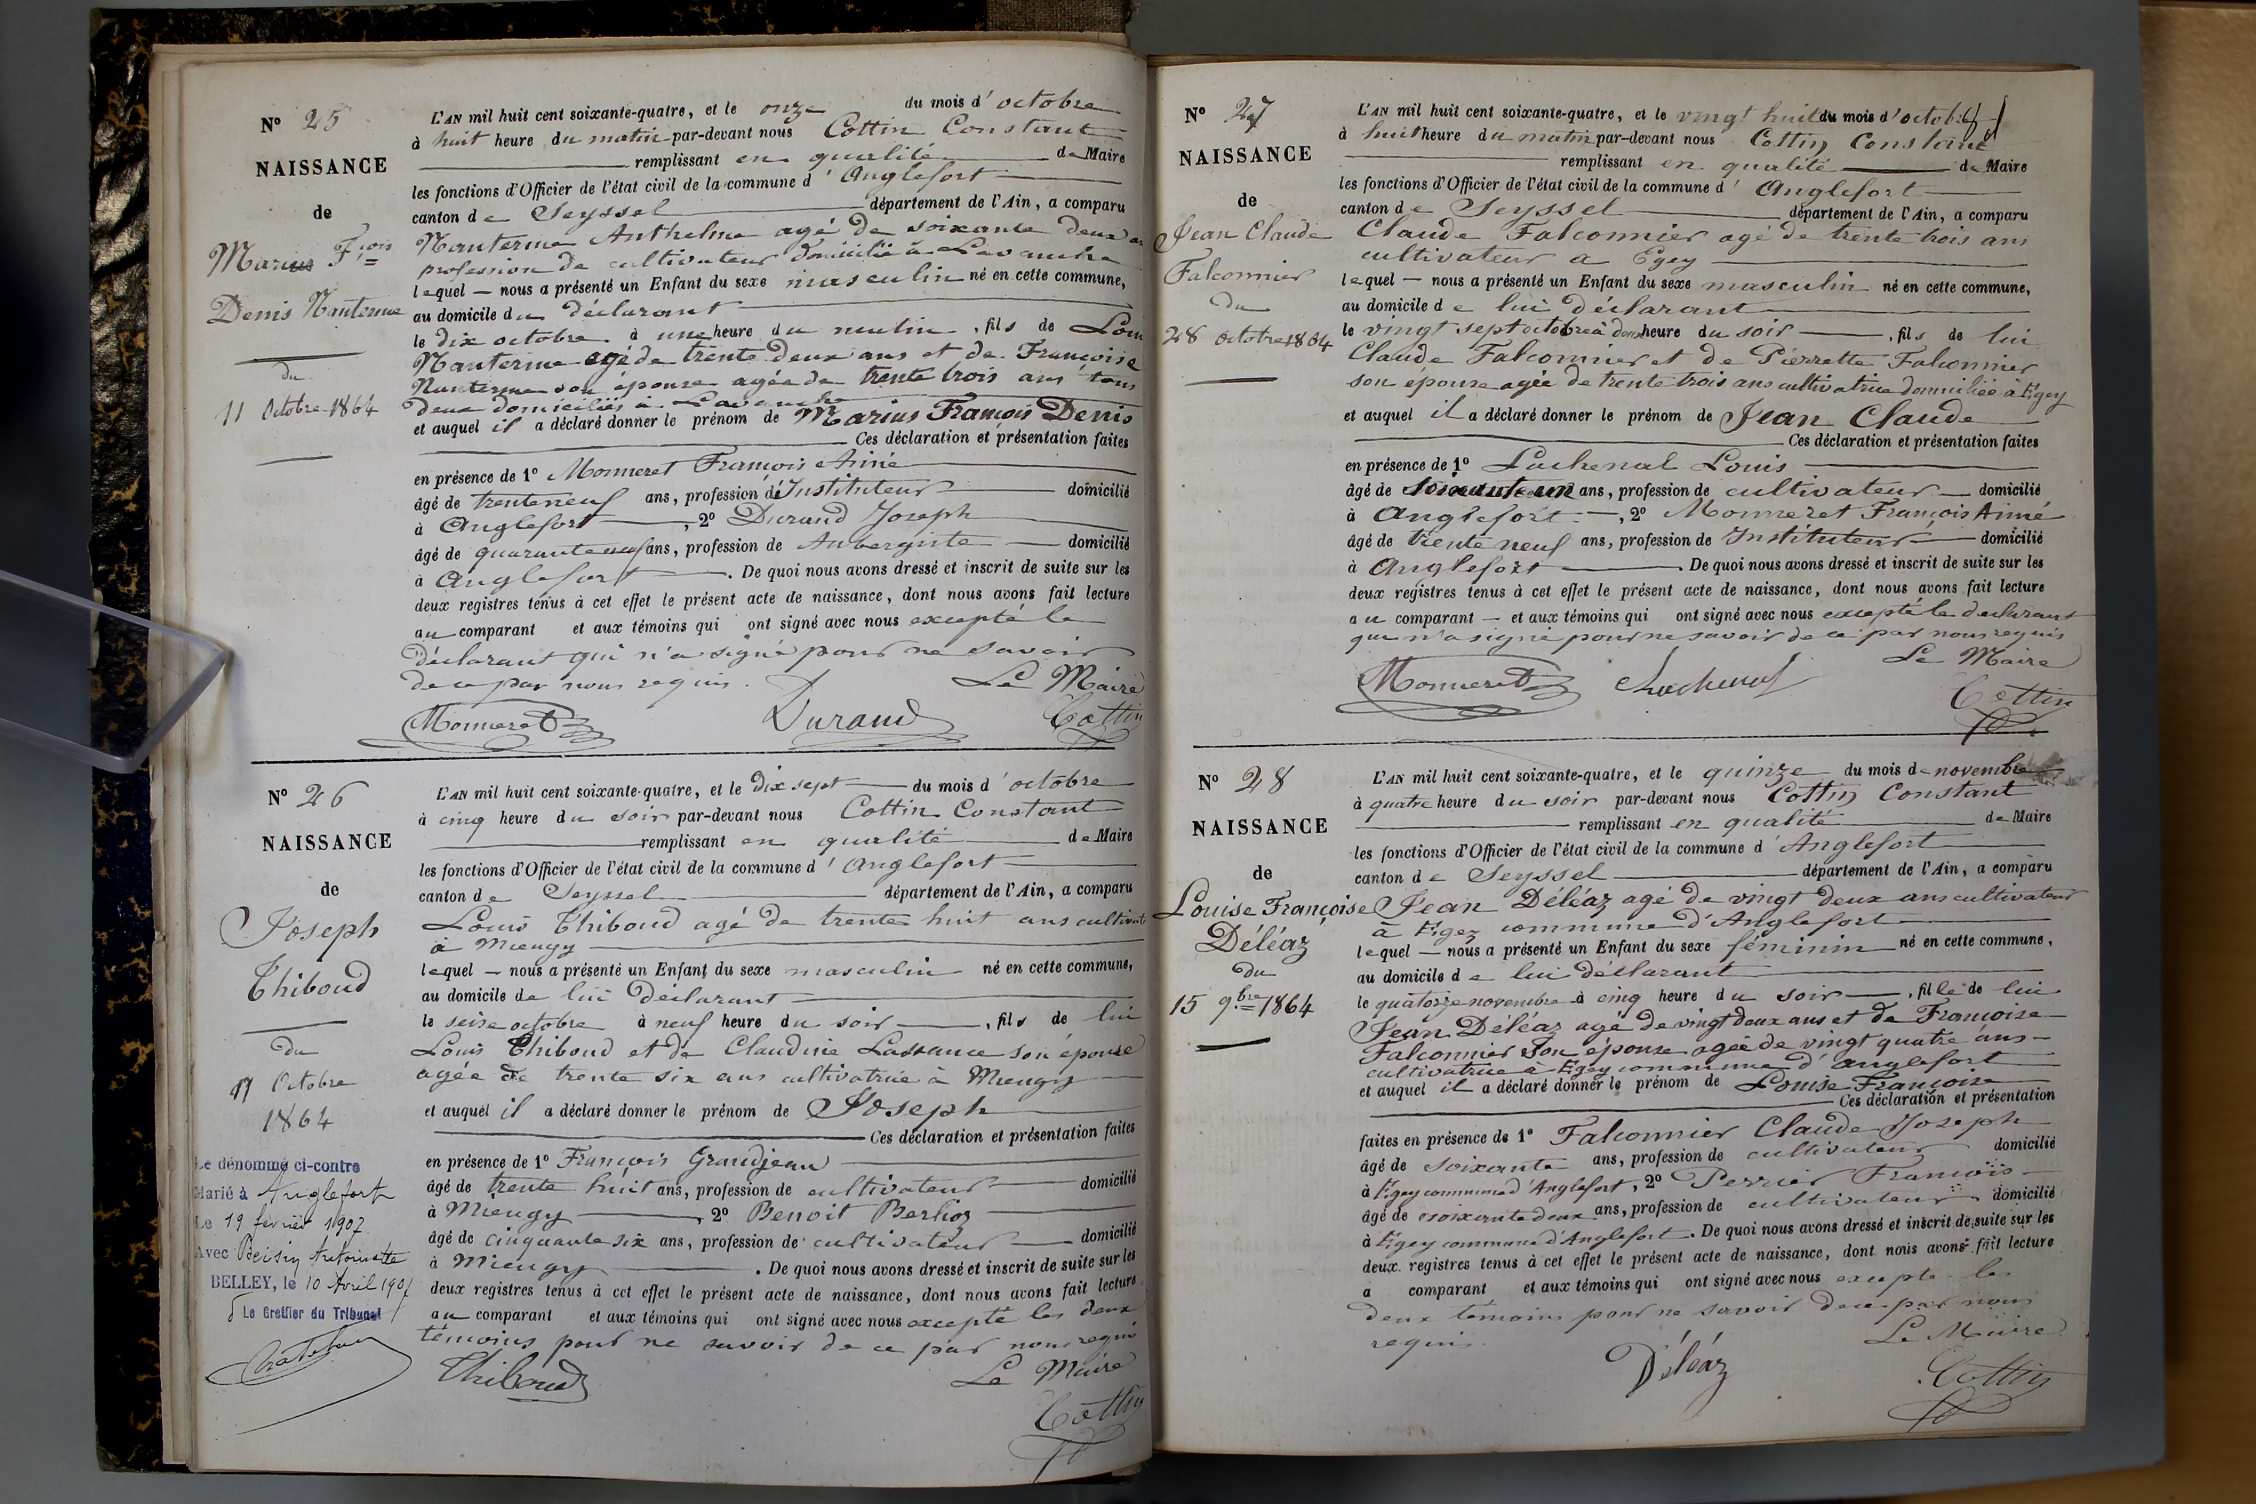 N° 25
NAISSANCE
de
Marius F.çois
Denis Nanterme
du
11 Octobre 1864
L'AN mil huit cent soixante-quatre, et le onze du mois d'octobre
à huit heure du matin par-devant nous Cottin Constant
remplissant en qualité de Maire
les fonctions d'Officier de l'état civil de la commune d'Anglefort
canton de Seyssel département de l'Ain, a comparu
Nanterme Anthelme agé de soixante deux ans
profession de cultivateur domicilié à Lavanche
lequel — nous a présenté un Enfant du sexe masculin né en cette commune,
au domicile du déclarant
le dix octobre à une heure du matin, fils de Louis
Nanterme agé de trente deux ans et de Françoise
Nanterme son épouse agée de trente trois ans tous
deux domiciliés à Lavanche
et auquel il a déclaré donner le prénom de Marius François Denis
Ces déclaration et présentation faites
en présence de 1° Monneret François Aimé
âgé de trente neuf ans, profession d'Instituteur domicilié
à Anglefort, 2° Durand Joseph
âgé de quarante neuf ans, profession de Aubergiste domicilié
à Anglefort. De quoi nous avons dressé et inscrit de suite sur les
deux registres tenus à cet effet le présent acte de naissance, dont nous avons fait lecture
au comparant et aux témoins qui ont signé avec nous excepté le
déclarant qui n'a signé pour ne savoir
de ce par nous requis.
Le Maire
Monneret Durand Cottin
N° 26
NAISSANCE
de
Joseph
Thiboud
du
17 Octobre
1864
Le dénommé ci-contre
Marié à Anglefort
Le 19 février 1907
Avec Beisin Antoinette
BELLEY, le 10 Avril 1907
Le Greffier du Tribunal
L'AN mil huit cent soixante-quatre, et le dix sept du mois d'octobre
à cinq heure du soir par-devant nous Cottin Constant
remplissant en qualité de Maire
les fonctions d'Officier de l'état civil de la commune d'Anglefort
canton de Seyssel département de l'Ain, a comparu
Louis Thiboud agé de trente huit ans cultivat
à Miengy
lequel — nous a présenté un Enfant du sexe masculin né en cette commune,
au domicile de lui déclarant
le seize octobre à neuf heure du soir, fils de lui
Louis Thiboud et de Claudine Lassance son épouse
agée de trente six ans cultivatrice à Miengy
et auquel il a déclaré donner le prénom de Joseph
Ces déclaration et présentation faites
en présence de 1° François Grandjean
âgé de trente huit ans, profession de cultivateur domicilié
à Miengy, 2° Benoit Berlioz
âgé de cinquante six ans, profession de cultivateur domicilié
à Miengy. De quoi nous avons dressé et inscrit de suite sur les
deux registres tenus à cet effet le présent acte de naissance, dont nous avons fait lecture
au comparant et aux témoins qui ont signé avec nous excepté les deux
témoins pour ne savoir de ce par nous requis
Thiboud Le Maire
Cottin
N° 27
NAISSANCE
de
Jean Claude
Falconnier
du
28 octobre 1864
L'AN mil huit cent soixante-quatre, et le vingt huit du mois d'octobre
à huit heure du matin par-devant nous Cottin Constant
remplissant en qualité de Maire
les fonctions d'Officier de l'état civil de la commune d'Anglefort
canton de Seyssel département de l'Ain, a comparu
Claude Falconnier agé de trente trois ans
cultivateur a Egey
lequel — nous a présenté un Enfant du sexe masculin né en cette commune,
au domicile de lui déclarant
le vingt sept octobre à deux heure du soir, fils de lui
Claude Falconnier et de Pierrette Falconnier
son épouse agée de trente trois ans cultivatrice domiciliée à Egey
et auquel il a déclaré donner le prénom de Jean Claude
Ces déclaration et présentation faites
en présence de 1° Lachenal Louis
âgé de soixante un ans, profession de cultivateur domicilié
à Anglefort, 2° Monneret François Aimé
âgé de trente neuf ans, profession de Instituteur domicilié
à Anglefort. De quoi nous avons dressé et inscrit de suite sur les
deux registres tenus à cet effet le présent acte de naissance, dont nous avons fait lecture
au comparant — et aux témoins qui ont signé avec nous excepté le declarant
qui n'a signé pour ne savoir de ce par nous requis
Le Maire
Monneret Lachenal Cottin
N° 28
NAISSANCE
de
Louise Françoise
Déléaz
du
15 9.bre 1864
L'AN mil huit cent soixante-quatre, et le quinze du mois de novembre
à quatre heure du soir par-devant nous Cottin Constant
remplissant en qualité de Maire
les fonctions d'Officier de l'état civil de la commune d'Anglefort
canton de Seyssel département de l'Ain, a comparu
Jean Déléaz agé de vingt deux ans cultivateur
à Egey commune d'Anglefort
lequel — nous a présenté un Enfant du sexe féminin né en cette commune,
au domicile de lui déclarant
le quatorze novembre à cinq heure du soir, fille de lui
Jean Déléaz agé de vingt deux ans et de Françoise
Falconnier son épouse agée de vingt quatre ans
cultivatrice à Egey commune d'anglefort
et auquel il a déclaré donner le prénom de Louise Françoise
Ces déclaration et présentation
faites en présence de 1° Falconnier Claude Joseph
âgé de soixante ans, profession de cultivateur domicilié
à Egey commune d'Anglefort, 2° Perrier François
âgé de soixante deux ans, profession de cultivateur domicilié
à Egey commune d'Anglefort. De quoi nous avons dressé et inscrit de suite sur les
deux registres tenus à cet effet le présent acte de naissance, dont nous avons fait lecture
a comparant et aux témoins qui ont signé avec nous excepté les
deux témoins pour ne savoir de ce par nous
requis.
Le Maire
Déléaz Cottin